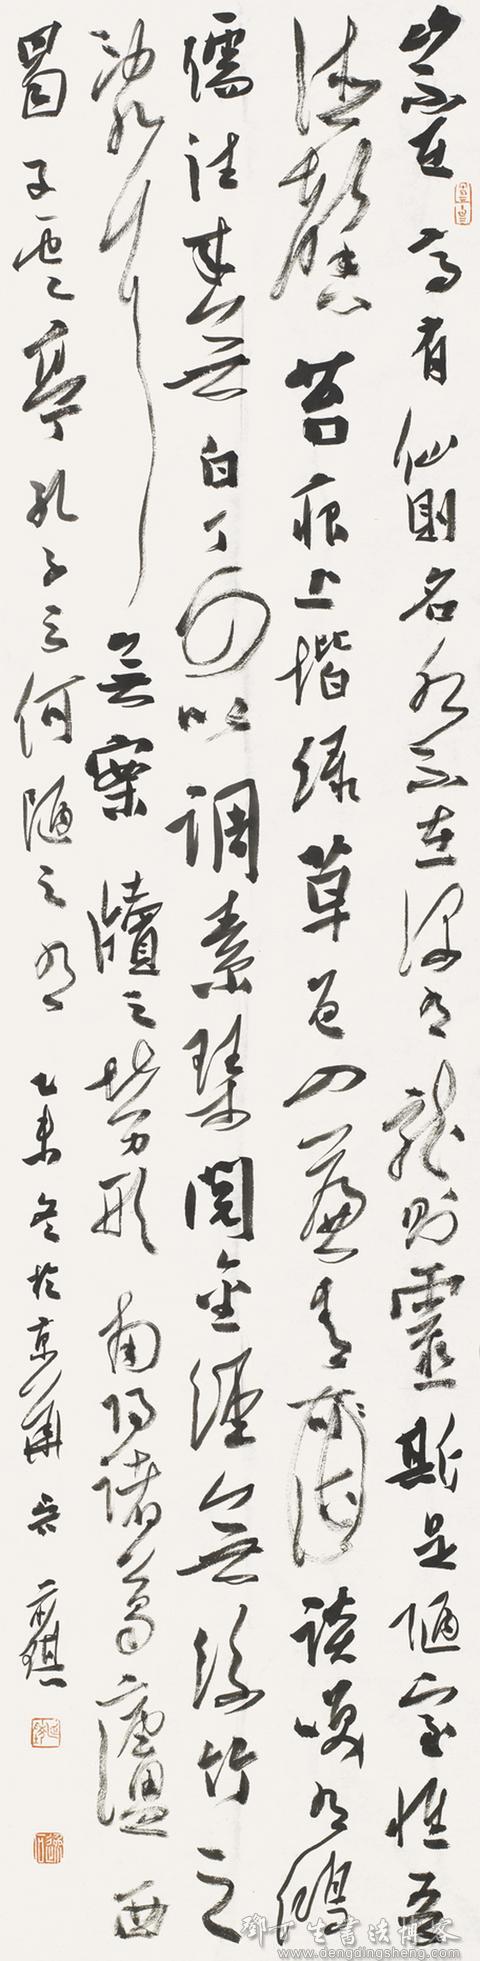 山不在高有仙則名水不在深有龍則靈斯是陋室惟吾
德馨苔痕上堦緑草色入簾青談咲有鴻
儒往来無白丁可以調素琴閲金經無絲竹之
亂耳無案牘之勞形南陽諸葛廬西
蜀子雲亭孔子云何陋之有 乙未冬於京華
鄧丁生書法博客
www.dengdingsheng.com